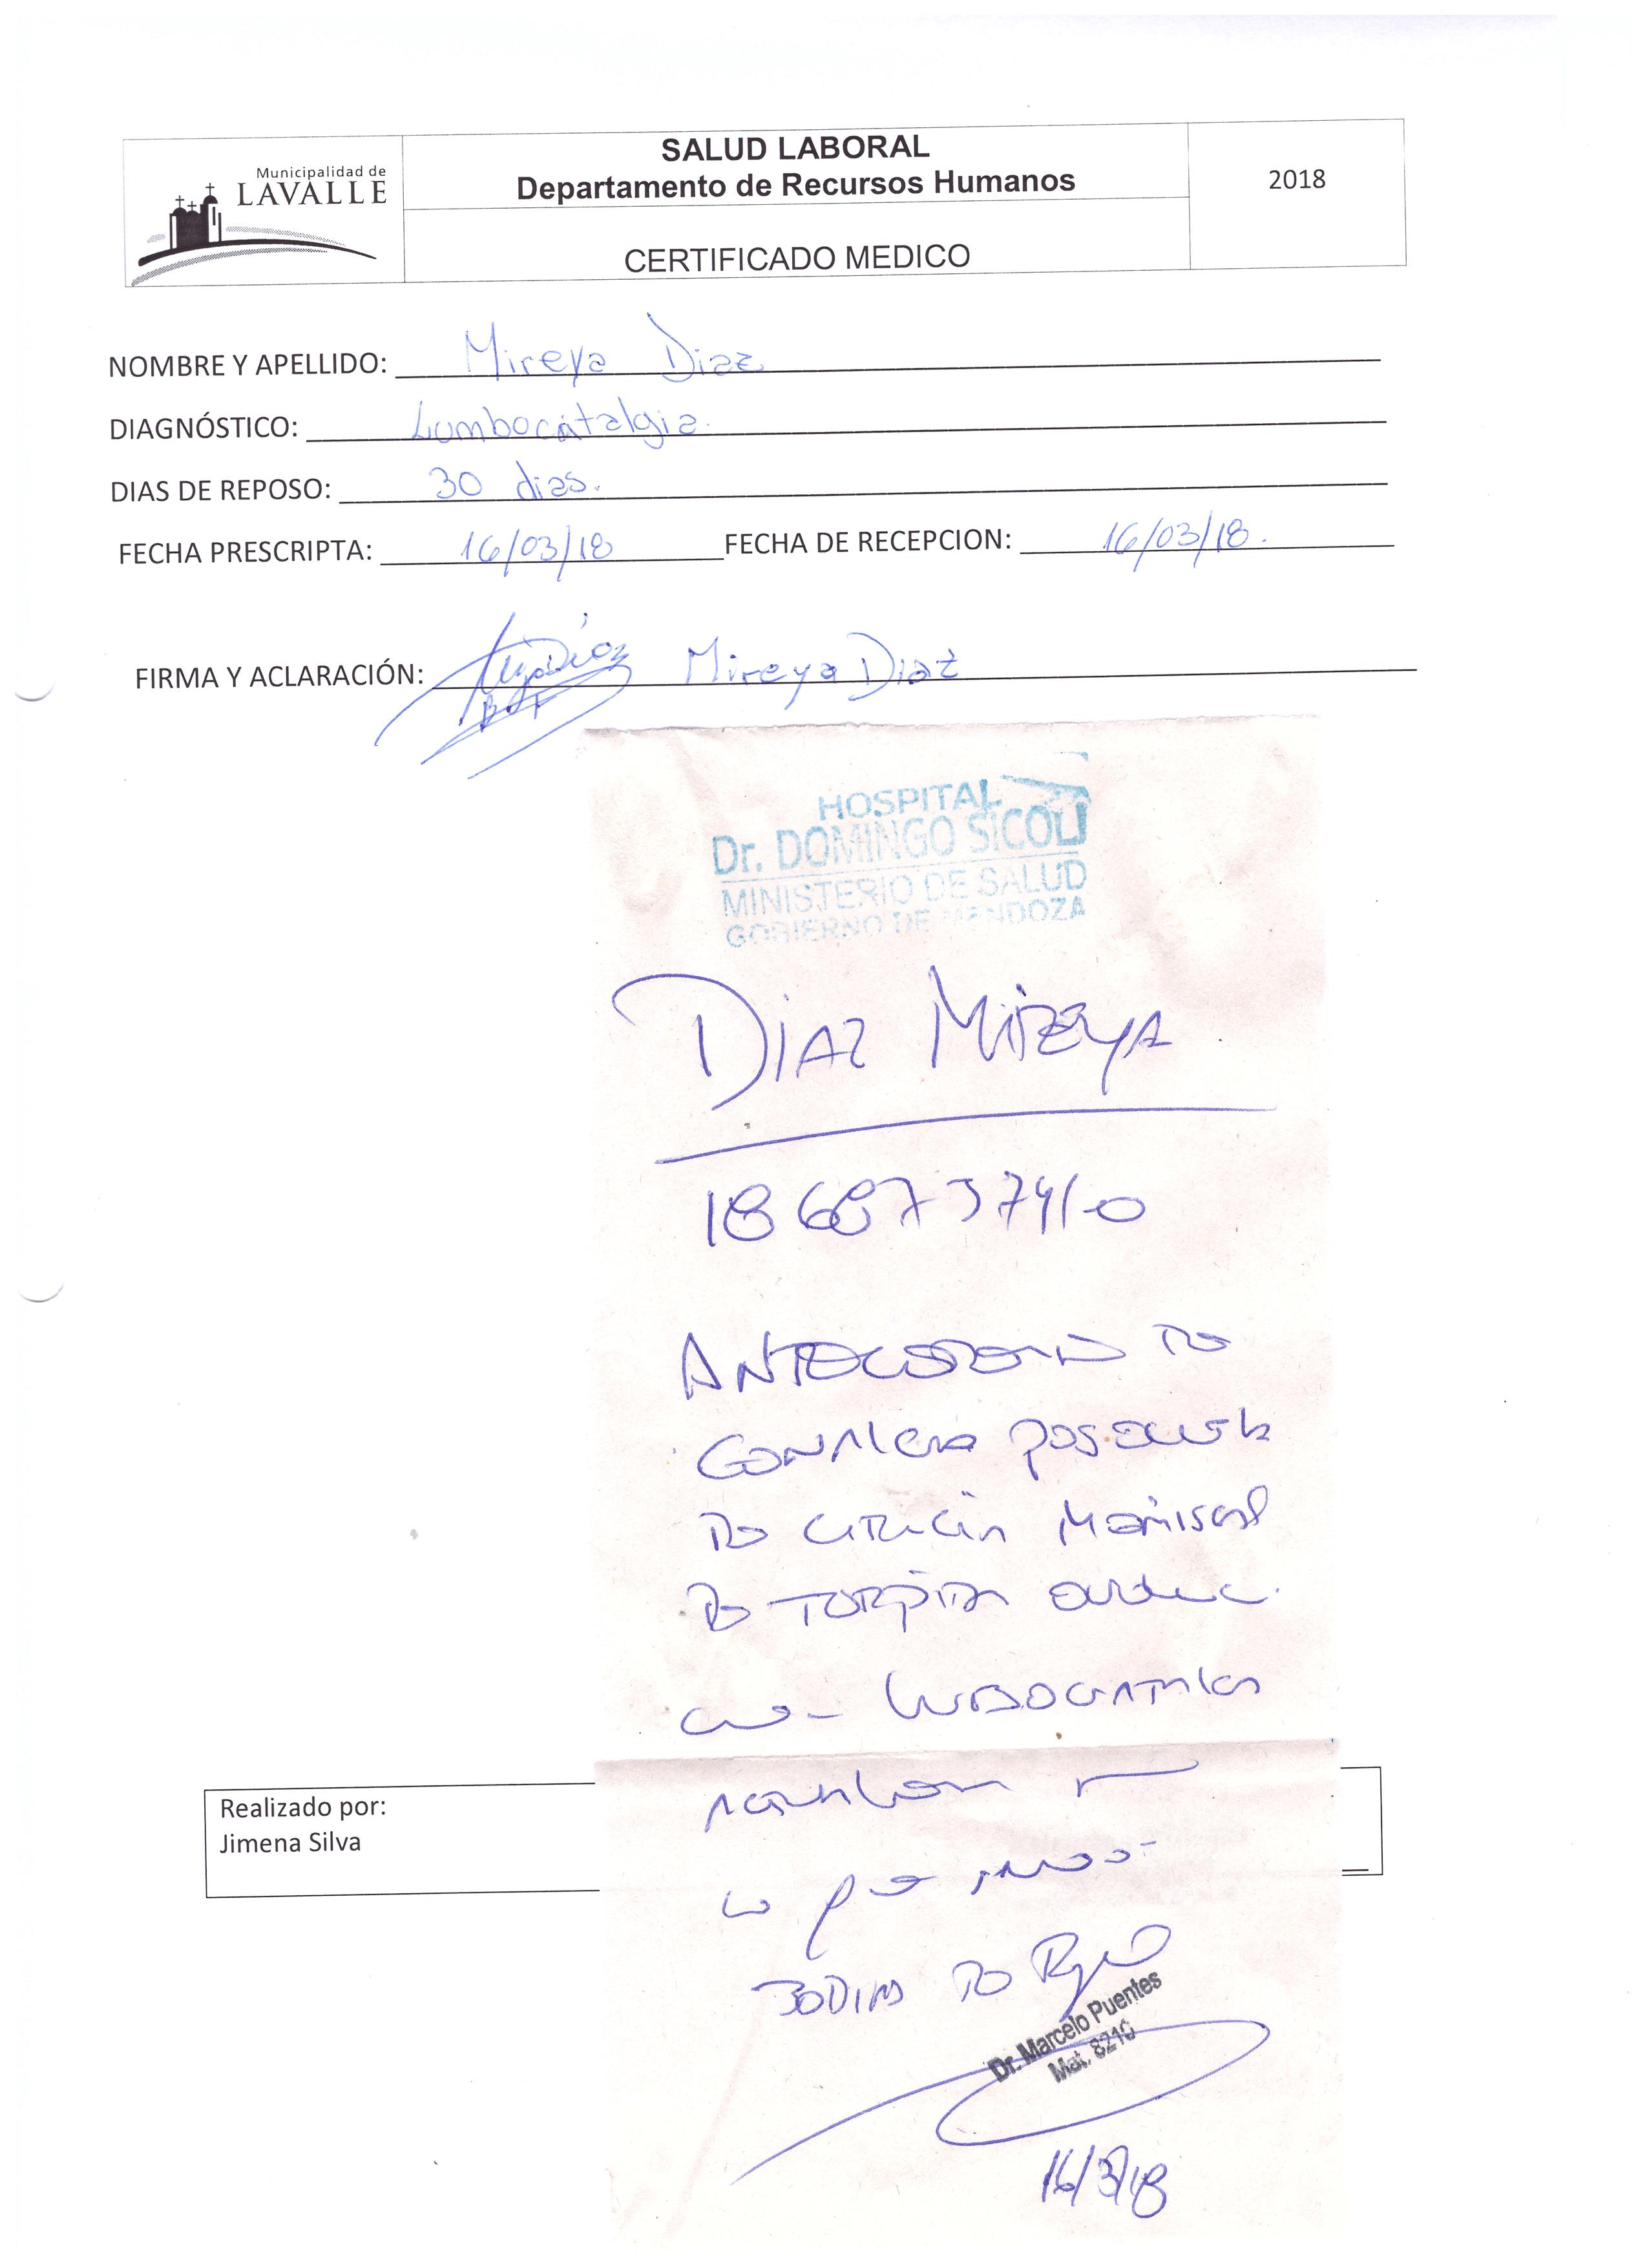 Municipalidad de
LAVALLE
SALUD LABORAL
Departamento de Recursos Humanos
CERTIFICADO MEDICO
2018
NOMBRE Y APELLIDO: Mireya Diaz
DIAGNÓSTICO: Lumbociatalgia.
DIAS DE REPOSO: 30 dias.
FECHA PRESCRIPTA: 16/03/18 FECHA DE RECEPCION: 16/03/18.
FIRMA Y ACLARACIÓN: Mireya Diaz
HOSPITAL
Dr. DOMINGO SICOLI
MINISTERIO DE SALUD
GOBIERNO DE MENDOZA
DIAZ MIREYA
ANTECEDENTE DE
GONALGIA
DE CIRUGIA MENISCAL
DE TORPIDA
LUMBOCIATALGIA
lo que
30 DIAS DE
Dr. Marcelo Puentes
Mat. 8210
16/3/18
Realizado por:
Jimena Silva